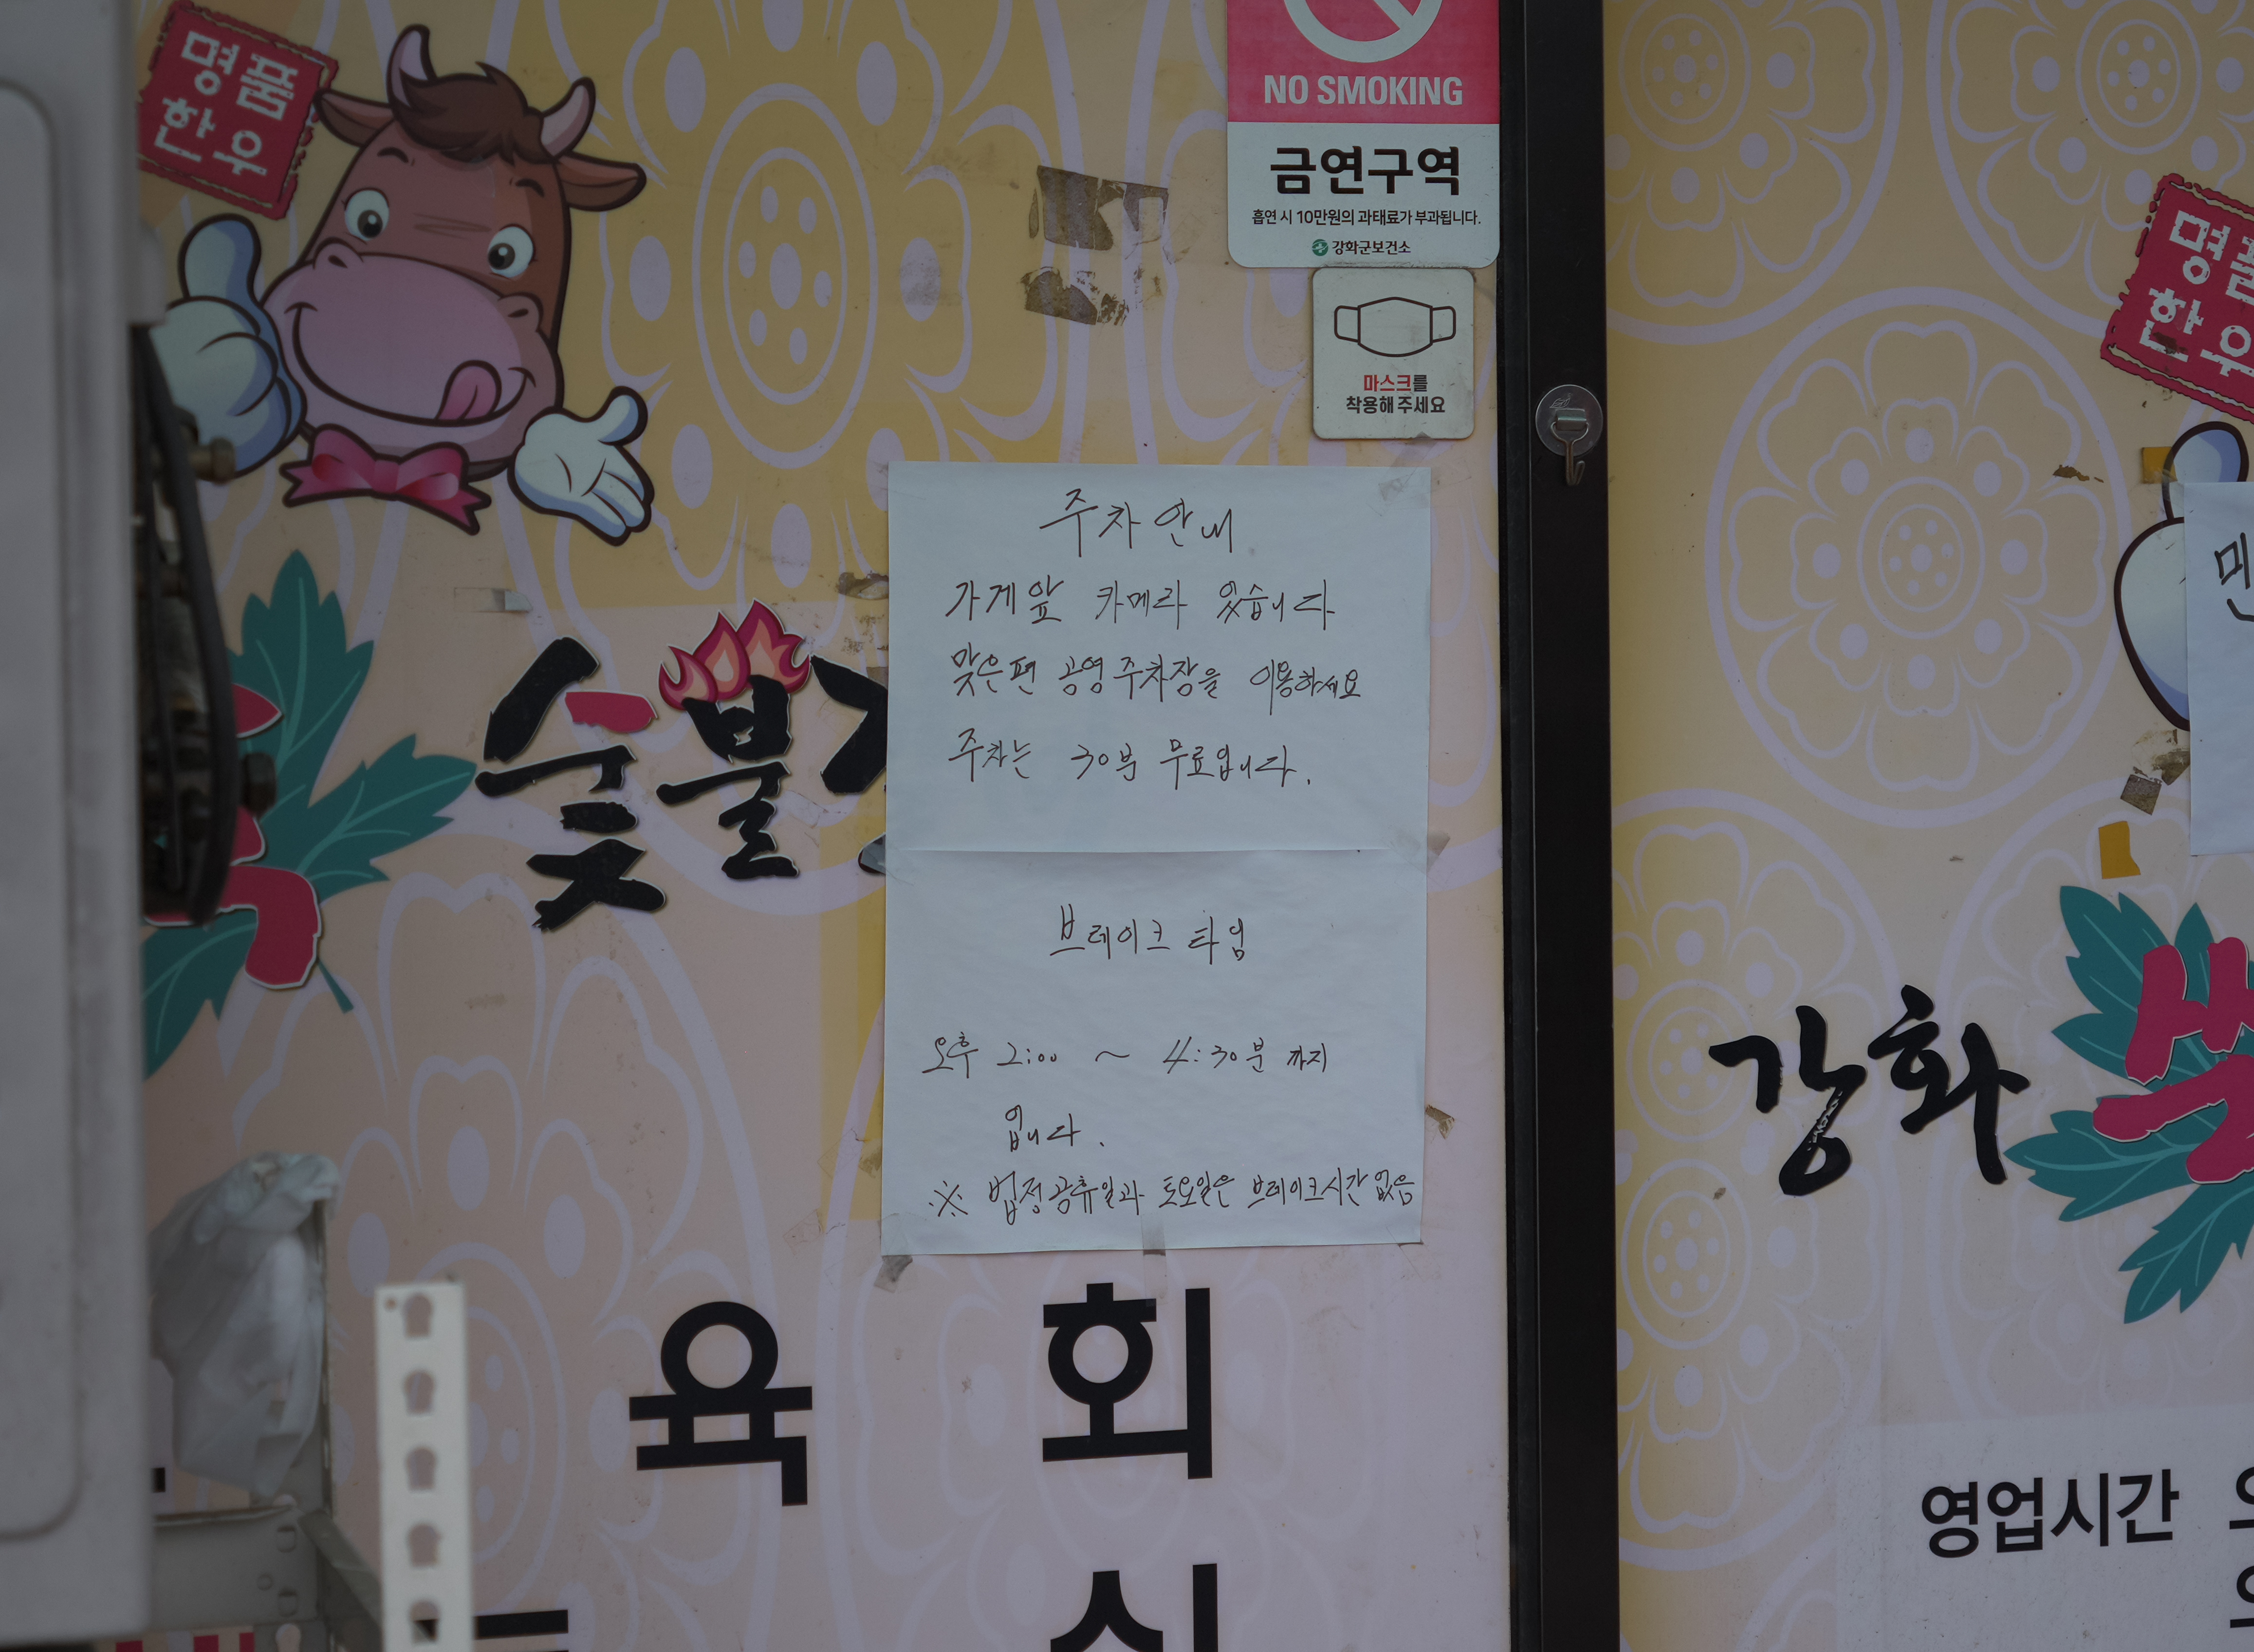 명품
한우
NO SMOKING
금연구역
흡연 시 10만원의 과태료가 부과됩니다.
강화군보건소
마스크를
착용해 주세요
명품
한우
주차 안내
가게앞 카메라 있습니다
맞은편 공영주차장을 이용하세요
주차는 30분 무료입니다.
브레이크 타임
오후 2:00 ~ 4:30분 까지
입니다.
※ 법정공휴일과 토요일은 브레이크시간 없음
숯불
강화
육 회
영업시간